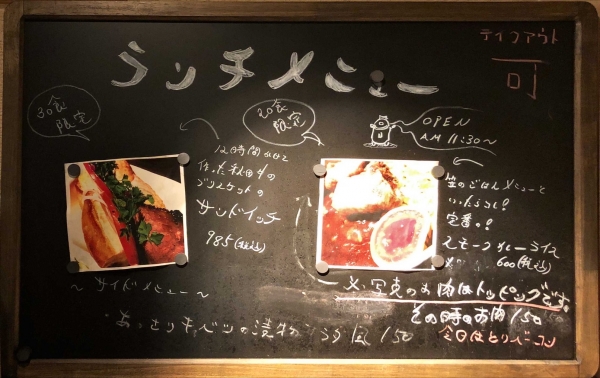 ランチメニュー
テイクアウト
可
30食
限定
20食
限定
OPEN
AM 11:30～
12時間かけて
作った秋田牛の
ブリスケットの
サンドイッチ
985(税込)
のごはんメニューと
いったらコレ!
定番。!
スモークカレーライス
600(税込)
※写真のお肉はトッピングです。
その時のお肉 150
今日はとりベーコン
～サイドメニュー～
・あっさりキャベツの漬物 風 150